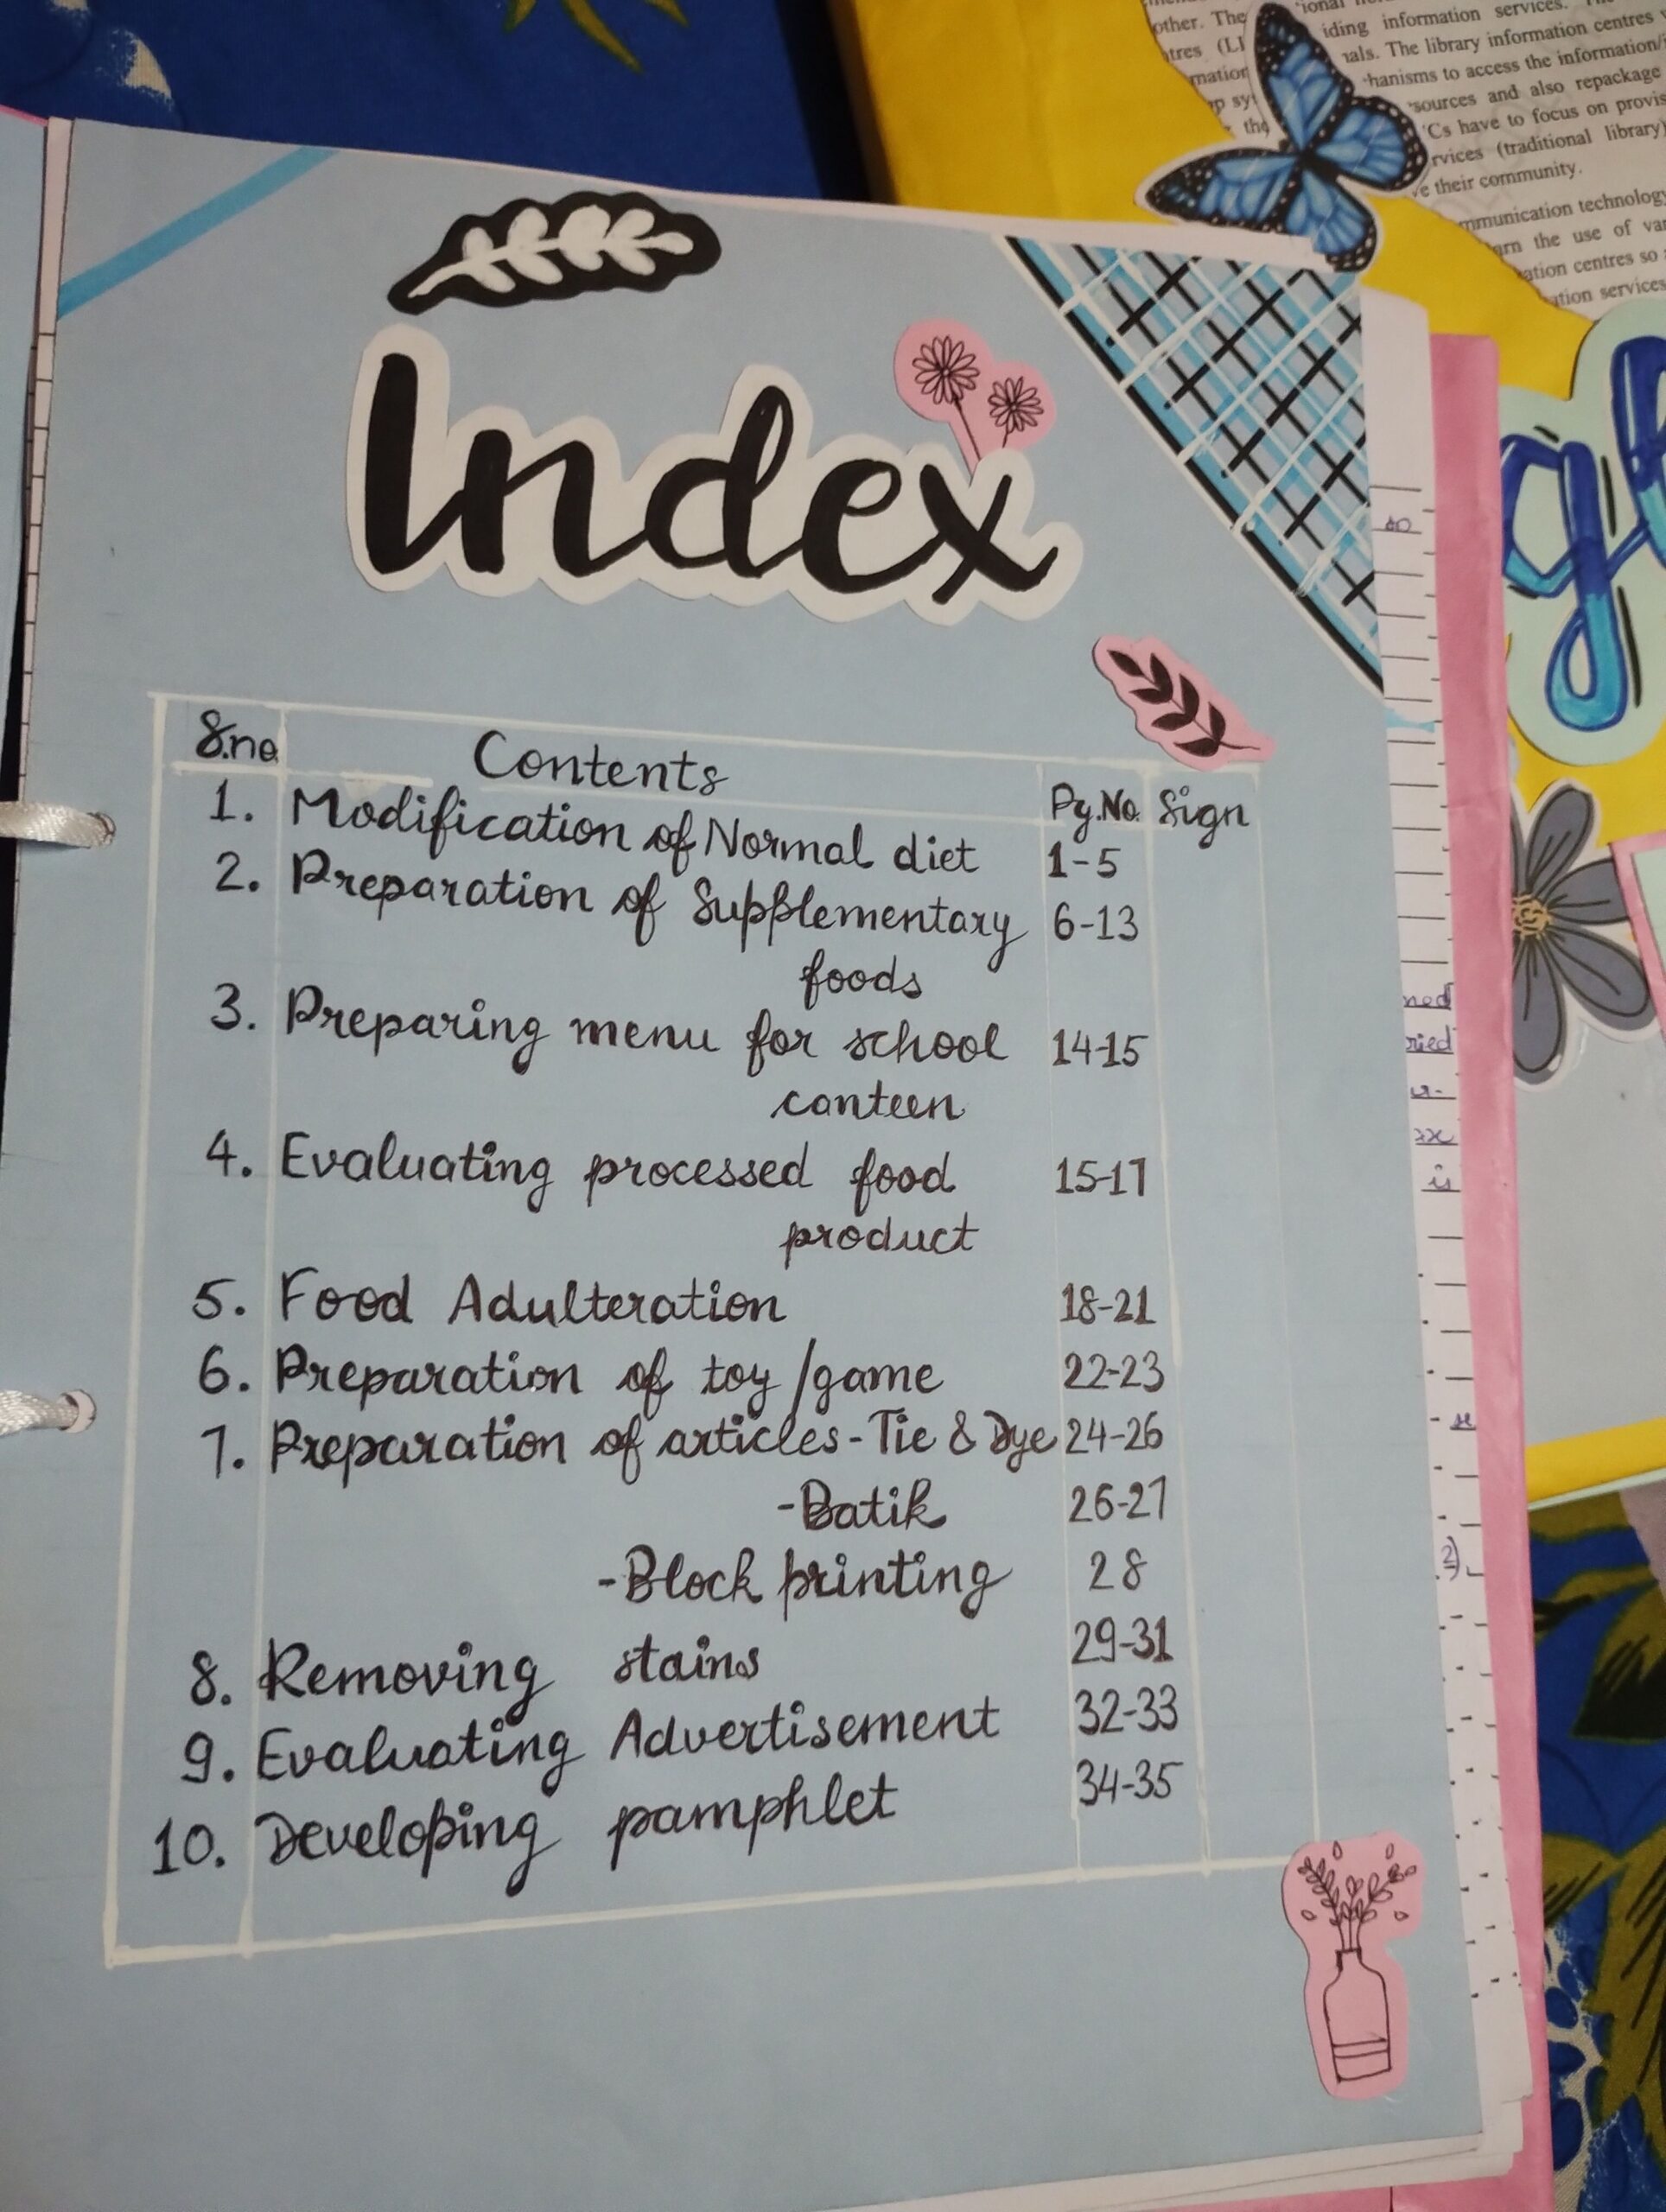 other. The
ional
iding information services.
tres (LI
uals. The library information centres
mation
hanisms to access the information/i
p sy
sources and also repackage
the
Cs have to focus on provis
rvices (traditional library)
e their community.
mmunication technology
arn the use of var
ation centres so
ation services
Index
S.no Contents Pg.No. Sign
1. Modification of Normal diet 1-5
2. Preparation of Supplementary 6-13
foods
3. Preparing menu for school 14-15
canteen
4. Evaluating processed food 15-17
product
5. Food Adulteration 18-21
6. Preparation of toy/game 22-23
7. Preparation of articles-Tie & Dye 24-26
-Batik 26-27
-Block printing 28
8. Removing stains 29-31
9. Evaluating Advertisement 32-33
10. Developing pamphlet 34-35
ned
ried
is